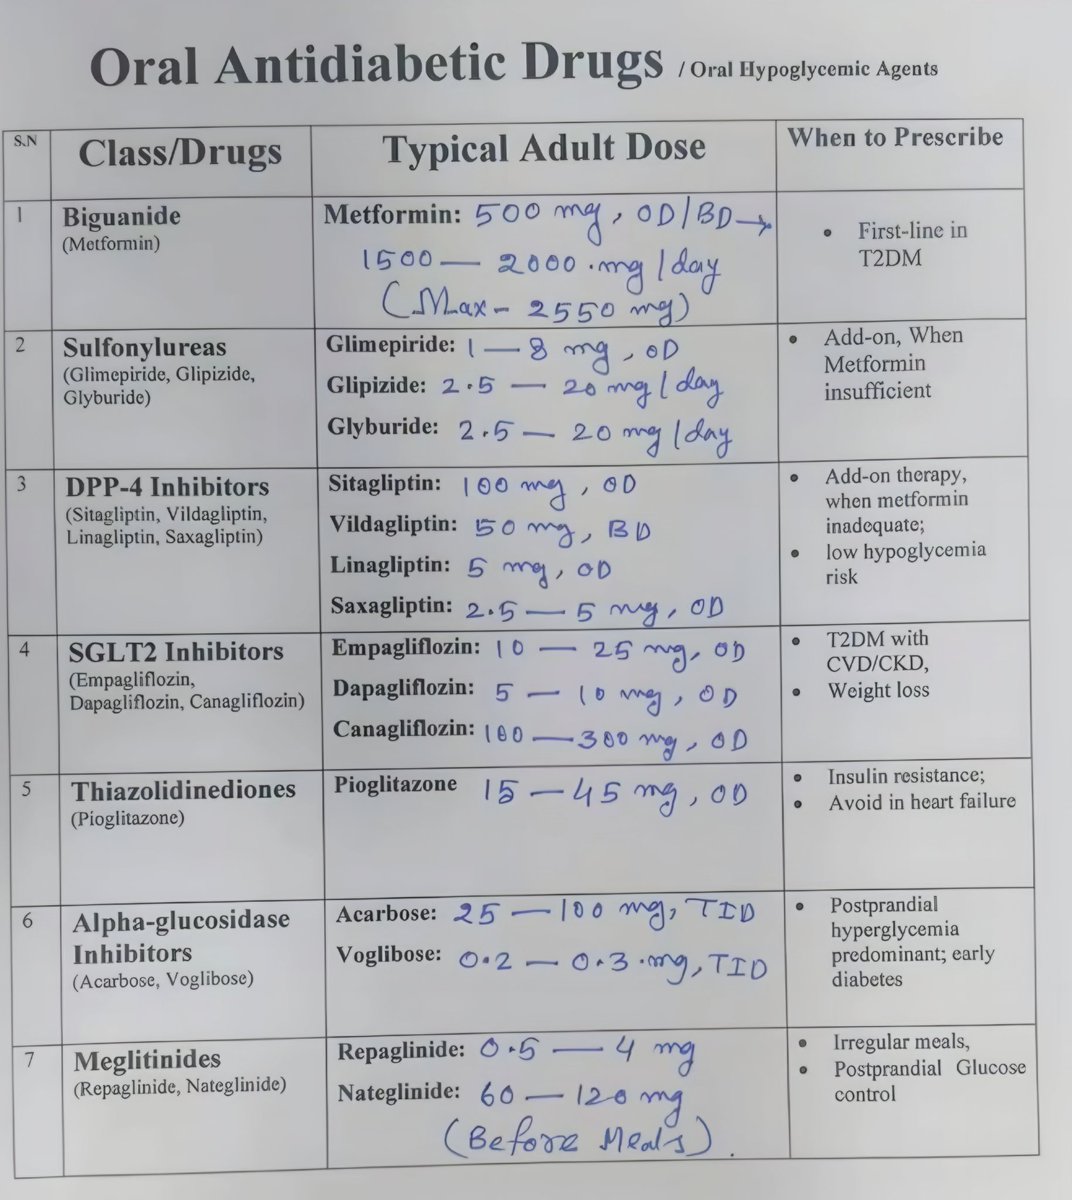 Oral Antidiabetic Drugs / Oral Hypoglycemic Agents
S.N
Class/Drugs
Typical Adult Dose
When to Prescribe
1
Biguanide
(Metformin)
Metformin: 500 mg, OD/BD→
1500 — 2000 mg/day
(Max - 2550 mg)
• First-line in
T2DM
2
Sulfonylureas
(Glimepiride, Glipizide,
Glyburide)
Glimepiride: 1 — 8 mg, OD
Glipizide: 2.5 — 20 mg/day
Glyburide: 2.5 — 20 mg/day
• Add-on, When
Metformin
insufficient
3
DPP-4 Inhibitors
(Sitagliptin, Vildagliptin,
Linagliptin, Saxagliptin)
Sitagliptin: 100 mg, OD
Vildagliptin: 50 mg, BD
Linagliptin: 5 mg, OD
Saxagliptin: 2.5 — 5 mg, OD
• Add-on therapy,
when metformin
inadequate;
• low hypoglycemia
risk
4
SGLT2 Inhibitors
(Empagliflozin,
Dapagliflozin, Canagliflozin)
Empagliflozin: 10 — 25 mg, OD
Dapagliflozin: 5 — 10 mg, OD
Canagliflozin: 100 — 300 mg, OD
• T2DM with
CVD/CKD,
• Weight loss
5
Thiazolidinediones
(Pioglitazone)
Pioglitazone 15 — 45 mg, OD
• Insulin resistance;
• Avoid in heart failure
6
Alpha-glucosidase
Inhibitors
(Acarbose, Voglibose)
Acarbose: 25 — 100 mg, TID
Voglibose: 0.2 — 0.3 mg, TID
• Postprandial
hyperglycemia
predominant; early
diabetes
7
Meglitinides
(Repaglinide, Nateglinide)
Repaglinide: 0.5 — 4 mg
Nateglinide: 60 — 120 mg
(Before Meals).
• Irregular meals,
• Postprandial Glucose
control